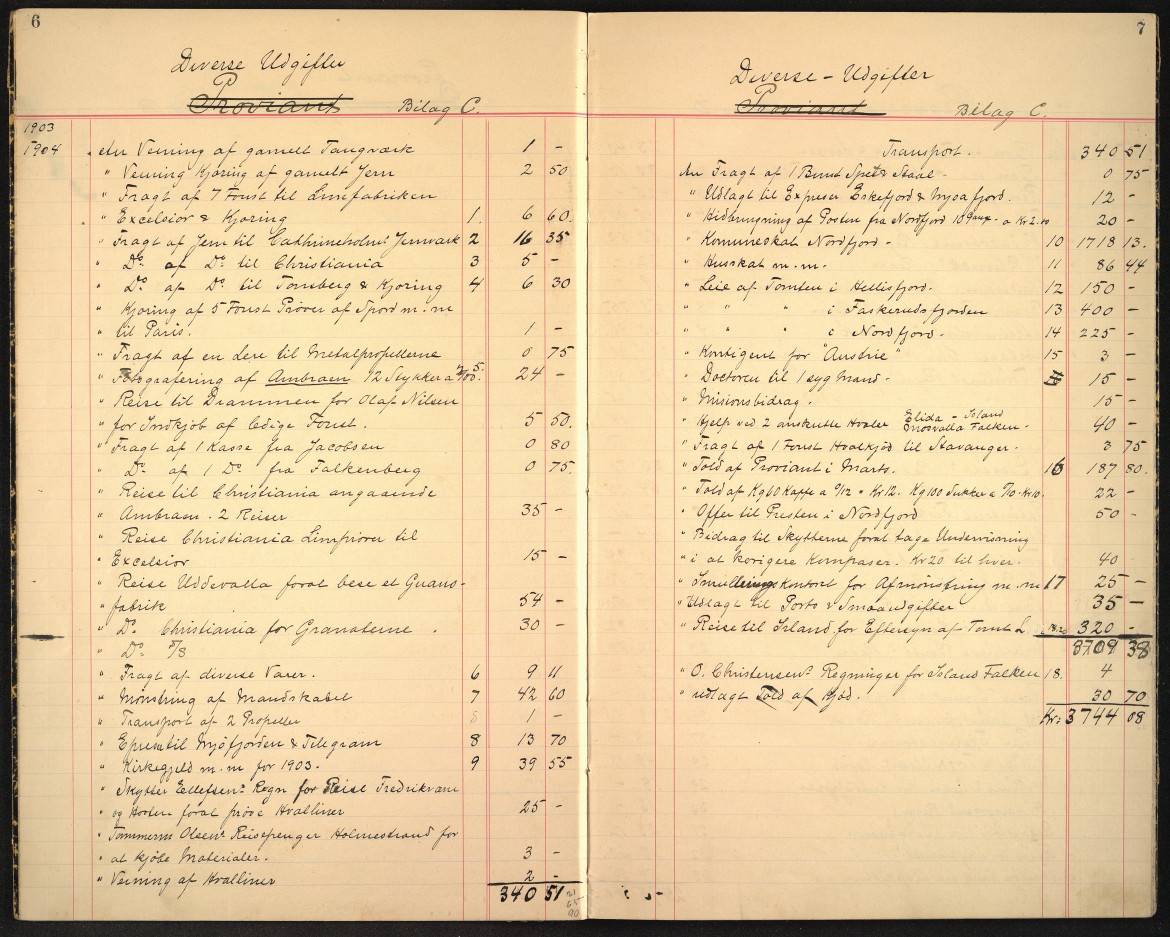 6
Diverse Udgifter
Proviant Bilag C.
1903
1904
An Veining af gammelt Tangværk 1 -
" Veining Kjøring af gamelt Jern 2 50
" Fragt af 7 Fonst til Limfabriken
" Excelsior & Kjøring 1. 6 60.
" Fragt af Jern til Cathrineholms Jernværk 2 16 35
" Do. af Do. til Christiania 3 5 -
" Do. af Do. til Tønsberg & Kjøring 4 6 30
" Kjøring af 5 Fonst Prøver af Spord m.m
" til Paris. 1 -
" Fragt af en Lere til Metalpropellerne 0 75
" Fotografering af Ambraen 12 Stykker a 24 -
" Reise til Drammen for Olaf Nilsen
" for Indkjøb af ledige Fonst. 5 50.
" Fragt af 1 Kasse fra Jacobsen 0 80
" Do. af 1 Do. fra Falkenberg 0 75.
" Reise til Christiania angaaende
" Ambraen. 2 Reiser 35 -
" Reise Christiania Limprøver til
" Excelsior 15 -
" Reise Uddevalla forat bese et Guano-
" fabrik 54 -
" Do. Christiania for Granaterne. 30 -
" Do. 5/3
" Fragt af diverse Varer. 6 9 11
" Mønstring af Mandskabet 7 42 60
" Transport af 2 Propeller 1 -
" Epres til Mjøfjorden & Telegram 8 13 70
" Kirkegjeld m.m for 1903. 9 39 55
" Skytter Ellefsens Regn for Reise Fredriksværn
" og Horten forat prøve Hvalliner 25 -
" Tømmerm Olsens Reisepenger Holmestrand for
" at kjøbe Materialer. 3 -
" Veining af Hvalliner 2 -
340 51
7
Diverse - Udgifter
Proviant Bilag C.
Transport. 340 51
An Fragt af 1 Bunt Spets Staal 0 75
" Udlagt til Expresser Eskefjord & Mjøsafjord. 12 -
" Nidbringning af Posten fra Nordfjord 10 Gang. a Kr 2.00 20 -
" Komuneskat Nordfjord - 10 1718 13.
" Husskat m.m. 11 86 44
" Leie af Tomten i Hellisfjord. 12 150 -
" " " i Faskerudsfjorden 13 400 -
" " " i Nordfjord. 14 225 -
" Kontigent for "Austrie" 15 3 -
" Doctoren til 1 syg Mand - 15 -
" Misionsbidrag. 15 -
" Hjelp ved 2 anskutte Hvaler Elida - Island
Mosvalla Falken - 40 -
" Fragt af 1 Fonst Hvalkjød til Stavanger. 3 75
" Told af Proviant i Marts. 16 187 80.
" Told af Kg 60 Kaffe a 0/12 = Kr 12. Kg 100 Sukker a 0/10. Kr 10. 22 -
" Offer til Presten i Nordfjord 50 -
" Bidrag til Skytterne forat tage Undervisning
" i at korigere Kompaser. Kr 20 til hver. 40 -
" kontort for Afmønstring m.m 17 25 -
" Udlagt til Porto & Smaaudgifter 35 -
" Reise til Island for Eftersyn af Tomt 320 -
3709 38
" O. Christensens Regninger for Island Falken 18. 4
" udlagt Told af Kjød. 30 70
Kr: 3744 08